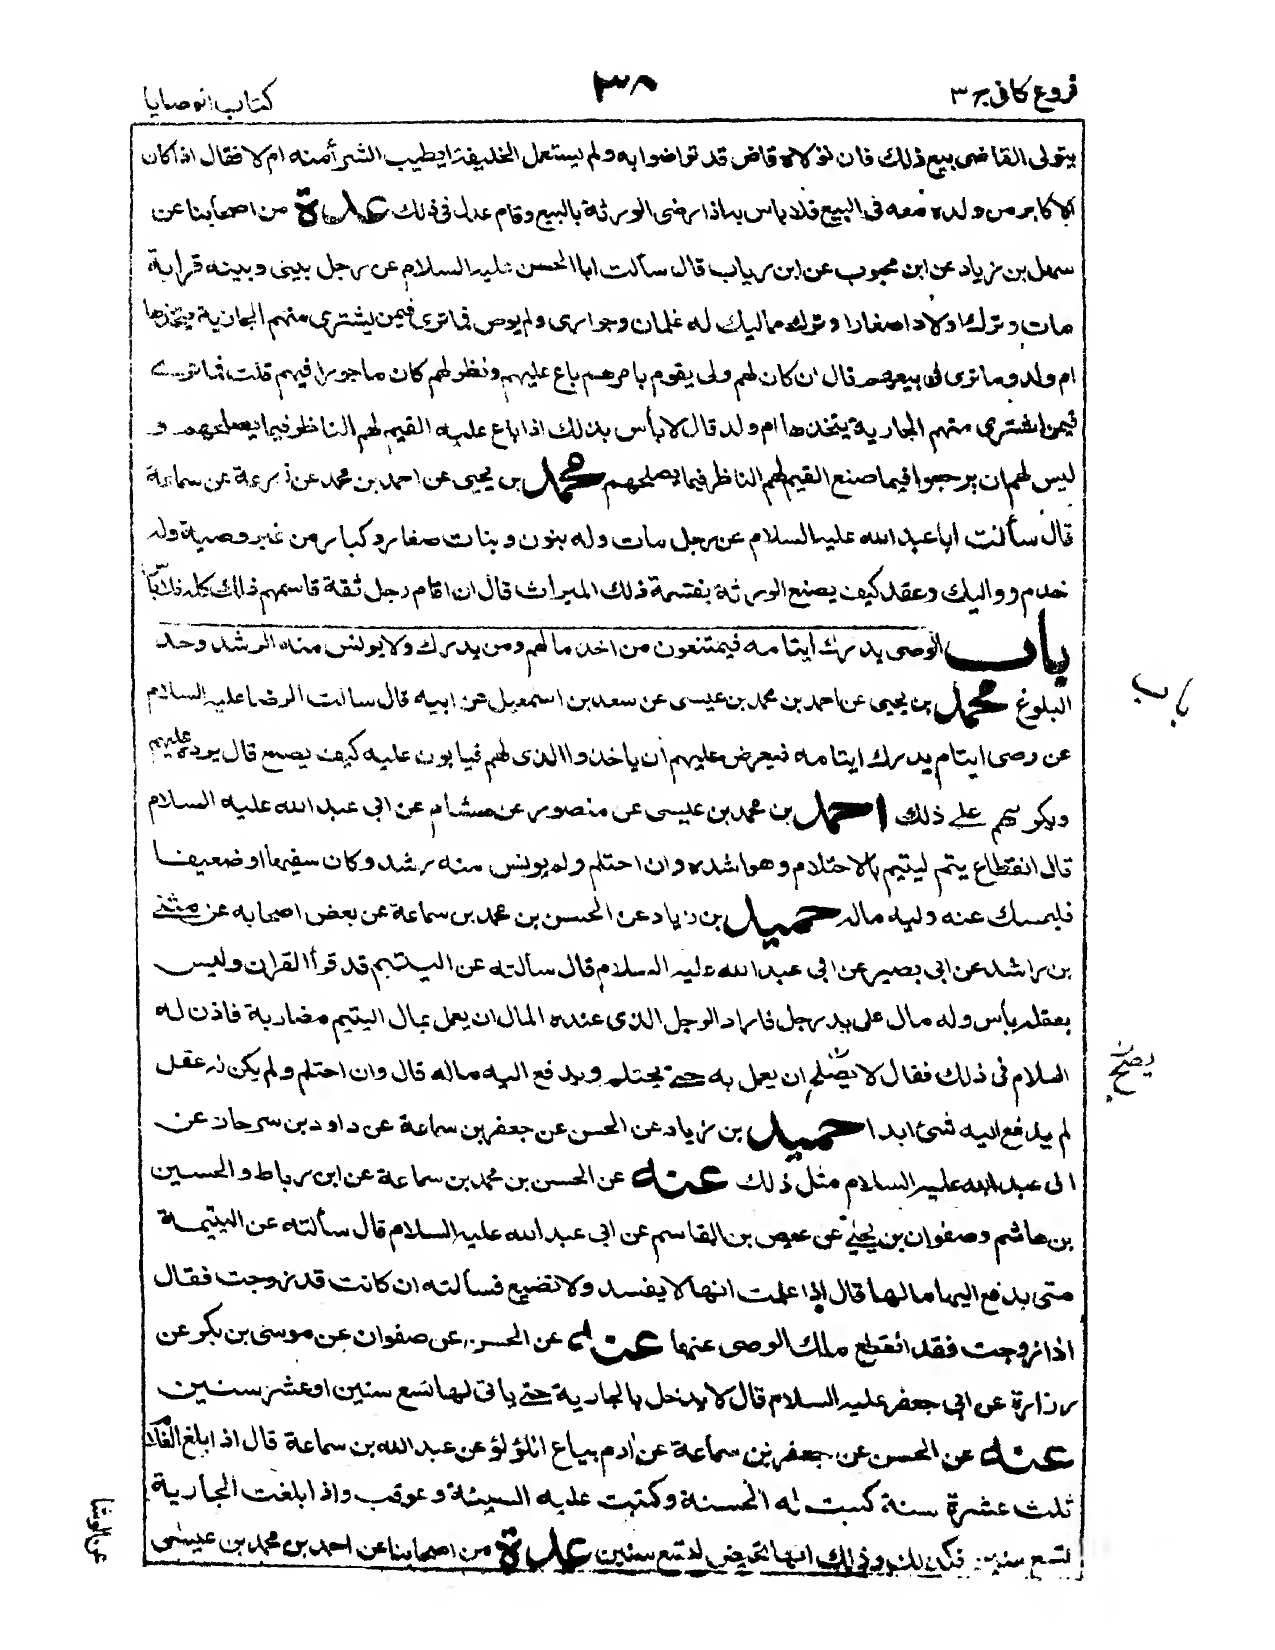 فروع كافى ج ٣
٣٨
كتاب الوصايا
يتولى القاضى بيع ذلك فان تولاه قاض قد تراضوا به ولم يستعمل الخليفة ايطيب الشرأ منه ام لا فقال اذا كان
الاكابر من ولده معه فى البيع فلا باس به اذا رضى الورثة بالبيع وقام عدل فى ذلك عدة من اصحابنا عن
سهل بن زياد عن ابن محبوب عن ابن رياب قال سألت ابا الحسن عليه السلام عن رجل بينى وبينه قرابة
مات وترك اولادا صغارا وترك مماليك له غلمان وجوارى ولم يوص فما ترى فيمن يشترى منهم الجارية يتخذها
ام ولد وما ترى فى بيعهم قال ان كان لهم ولى يقوم بامرهم باع عليهم ونظر لهم كان ماجورا فيهم قلت فما ترى
فيمن اشترى منهم الجارية يتخذها ام ولد قال لا بأس بذلك اذا باع عليه القيم لهم الناظر فيما يصلحهم و
ليس لهم ان يرجعوا فيما صنع القيم لهم الناظر فيما يصلحهم محمد بن يحيى عن احمد بن محمد عن زرعة عن سماعة
قال سألت ابا عبد الله عليه السلام عن رجل مات وله بنون وبنات صغار وكبار من غير وصية وله
خدم ومواليك وعقد كيف يصنع الورثة بقسمة ذلك الميراث قال ان اقام رجل ثقة قاسمهم ذلك كله فلا بأس
باب الوصى يدرك ايتامه فيمتنعون من اخذ مالهم ومن يدرك ولا يونس منه الرشد وحد
البلوغ محمد بن يحيى عن احمد بن محمد بن عيسى عن سعد بن اسمعيل عن ابيه قال سالت الرضا عليه السلام
عن وصى ايتام يدرك ايتامه فيعرض عليهم ان ياخذوا الذى لهم فيابون عليه كيف يصنع قال يرده عليهم
ويكرههم على ذلك احمد بن محمد بن عيسى عن منصور عن هشام عن ابى عبد الله عليه السلام
قال انقطاع يتم ليتيم بالاحتلام وهو اشده وان احتلم ولم يونس منه رشد وكان سفيها او ضعيفا
فليمسك عنه وليه ماله حميد بن زياد عن الحسن بن محمد بن سماعة عن بعض اصحابه عن مثنى
بن راشد عن ابى بصير عن ابى عبد الله عليه السلام قال سألته عن اليتيم قد قرأ القران وليس
بعقله بأس وله مال على يد رجل فاراد الرجل الذى عنده المال ان يعمل بمال اليتيم مضاربة فاذن له
السلام فى ذلك فقال لا يصلح ان يعمل به حتى يحتلم ويدفع اليه ماله قال وان احتلم ولم يكن له عقل
لم يدفع اليه شئ ابدا حميد بن زياد عن الحسن عن جعفر بن سماعة عن داود بن سرحان عن
ابى عبد الله عليه السلام مثل ذلك عنه عن الحسن بن محمد بن سماعة عن ابن رباط والحسين
بن هاشم وصفوان بن يحيى عن عيص بن القاسم عن ابى عبد الله عليه السلام قال سألته عن اليتيمة
متى يدفع اليها مالها قال اذا علمت انها لا يفسد ولا تضيع فسألته ان كانت قد زوجت فقال
اذا زوجت فقد انقطع ملك الوصى عنها عنه عن الحسن عن صفوان عن موسى بن بكر عن
زرارة عن ابى جعفر عليه السلام قال لا يدخل بالجارية حتى ياتى لها تسع سنين او عشر سنين
عنه عن الحسن عن جعفر بن سماعة عن ادم بياع اللؤلؤ عن عبد الله بن سماعة قال اذا بلغ الغلام
ثلث عشرة سنة كتبت له الحسنة وكتبت عليه السيئة وعوقب واذا بلغت الجارية
لتسع سنين فكذلك وذلك انها تحيض لتسع سنين عدة من اصحابنا عن احمد بن محمد بن عيسى
باب
يصلح
عن الوشا